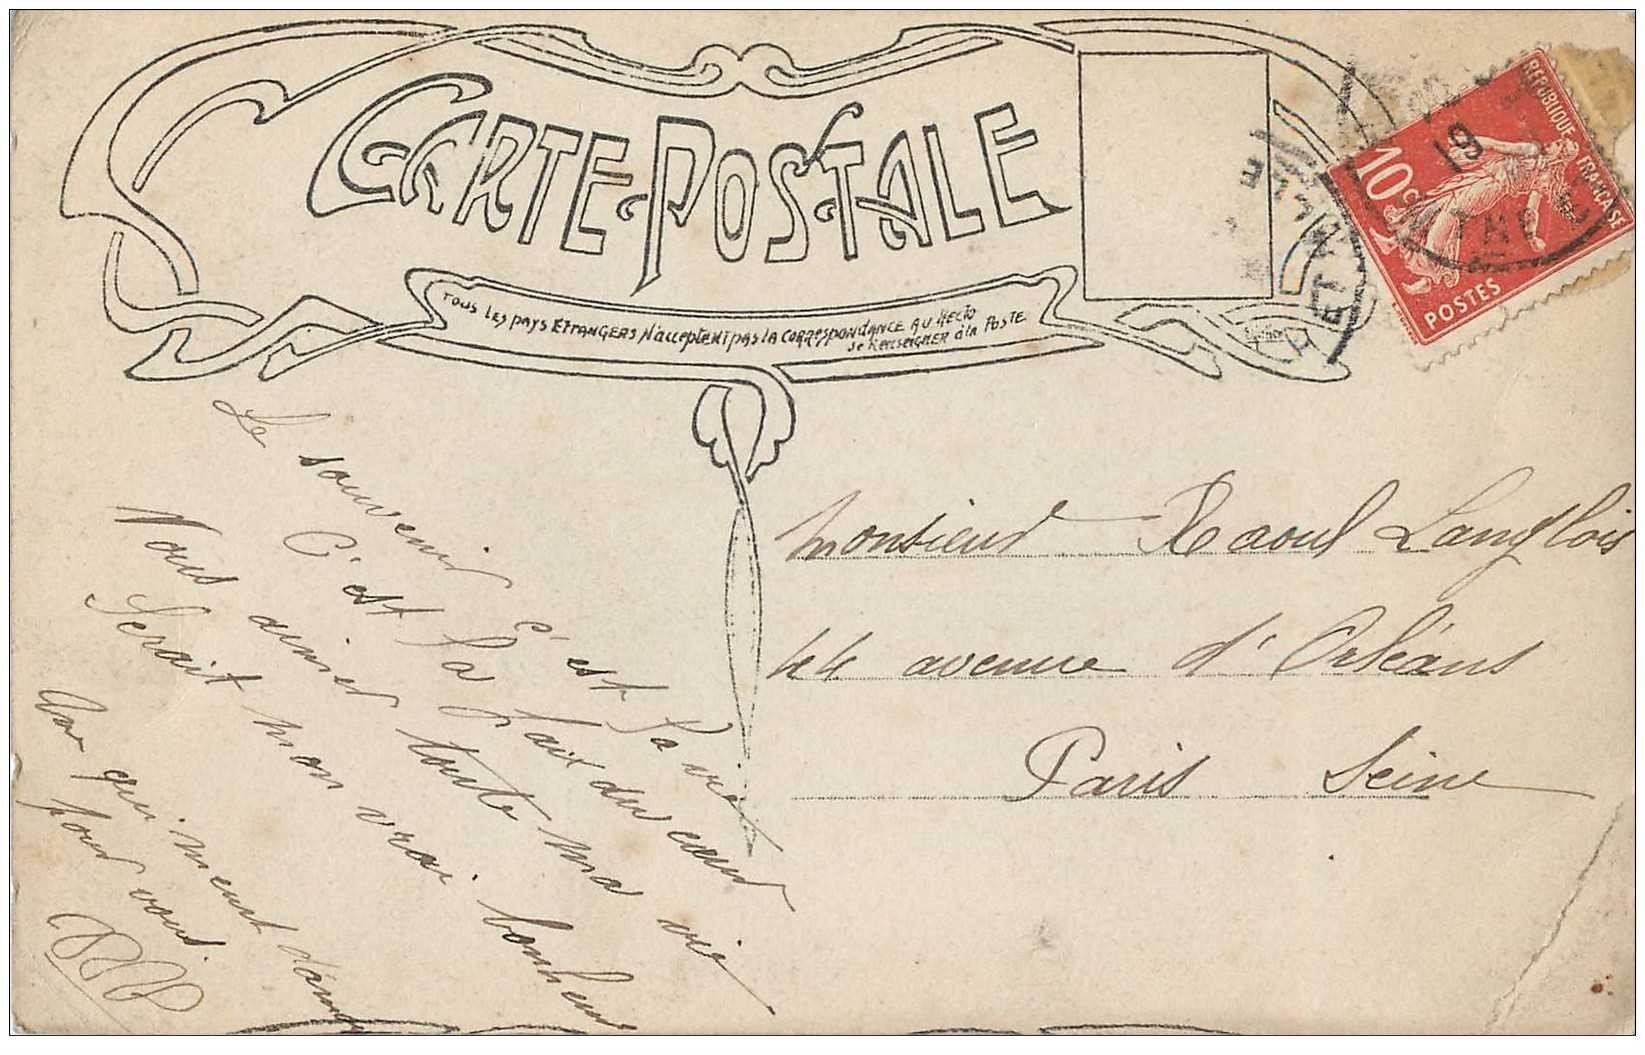 CARTE POSTALE
TOUS LES PAYS ETRANGERS N'acceptent PAS LA CORRESPONDANCE AU RECTO
Se RENSEIGNER à la POSTE
REPUBLIQUE FRANCAISE
10c
POSTES
19
Le souvenir c'est la vie
C'est la paix du cœur
Vous aimer toute ma vie
Serait mon vrai bonheur
qui meurt d'amour
pour vous
Monsieur Raoul Langlois
44 avenue d'Orléans
Paris Seine